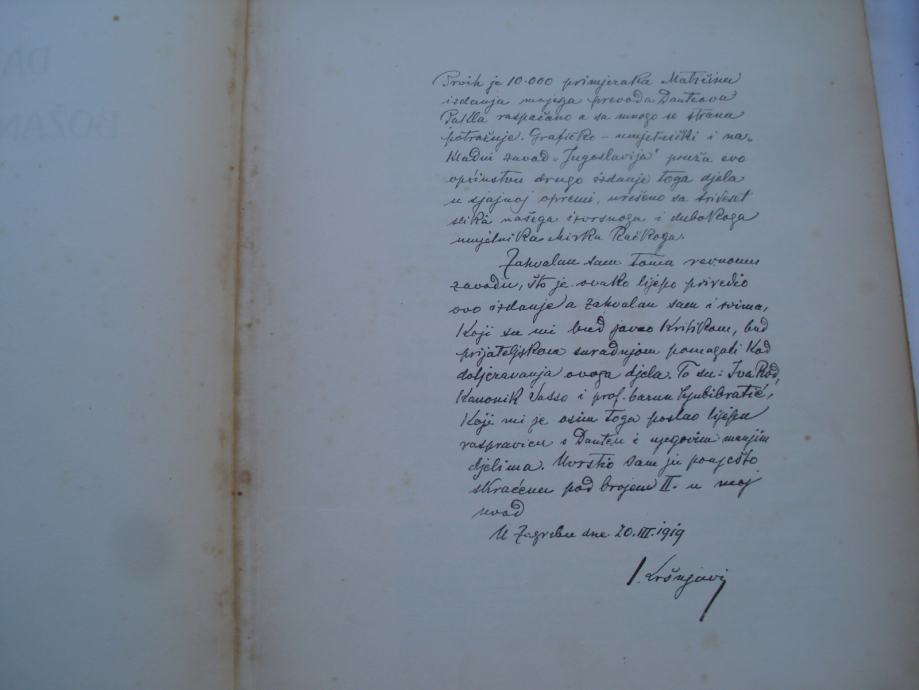 DA
BOŽAN
Prvih je 10.000 primjeraka Matičina
izdanja mojega prevoda Danteova
Pakla raspačano a sa mnogo se strana
potražuje. Grafičko-umjetnički i na-
kladni zavod „Jugoslavija" pruža evo
općinstvu drugo izdanje toga djela
u sjajnoj opremi, urešeno sa trideset
slika našega izvrsnoga i dubokoga
umjetnika Mirka Račkoga.
Zahvalan sam tomu revnomu
zavodu, što je ovako lijepo priredio
ovo izdanje a zahvalan sam i svima,
koji su mi bud javno kritikom, bud
prijateljskom suradnjom pomagali kod
dotjeravanja ovoga djela. To su: Iva
kanonik Vasso i prof. barun Ljubibratić,
koji mi je osim toga poslao lijepu
raspravicu o Danteu i njegovim manjim
djelima. Uvrstio sam ju ponješto
skraćenu pod brojem II. u moj
uvod
U Zagrebu dne 20.III.1919
I. Kršnjavi